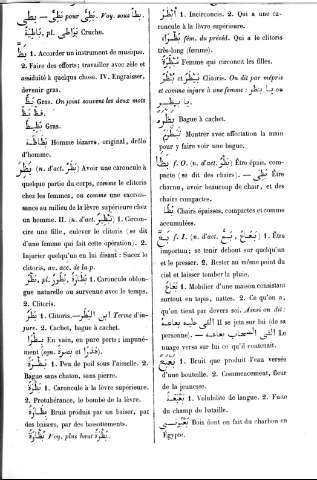 بطى — بطئ pour بطئ. Voy. sous بطا.
باطية, pl. بواطى Cruche.
بظ 1. Accorder un instrument de musique.
2. Faire des efforts; travailler avec zèle et
assiduité à quelque chose. IV. Engraisser,
devenir gras.
بظ Gras. On joint souvent les deux mots
فظ بظ
بظيظ Gras.
Homme bizarre, original, drôle
d'homme.
بظر (n. d'act. بظر) Avoir une caroncule à
quelque partie du corps, comme le clitoris
chez les femmes, ou comme une excrois-
sance au milieu de la lèvre supérieure chez
un homme. II. (n. d'act. تبظير) 1. Circon-
cire une fille, enlever le clitoris (se dit
d'une femme qui fait cette opération). 2.
Injurier quelqu'un en lui disant : Sucez le
clitoris, av. acc. de la p.
بظر, pl. بظور, بظرة 1. Caroncule oblon-
gue naturelle ou survenue avec le temps.
2. Clitoris.
بظر 1. Clitoris. — ابن البظر Terme d'in-
jure. 2. Cachet, bague à cachet.
بظرا En vain, en pure perte; impuné-
ment (syn. هدرا et خضرة).
بظرة 1. Peu de poil sous l'aisselle. 2.
Bague sans chaton, sans pierre.
بظرة 1. Caroncule à la lèvre supérieure.
2. Protubérance, le bombé de la lèvre.
بظارة Bruit produit par un baiser, par
des baisers, par des baisottements.
بظارة Voy. plus haut بظرة.
أبظر 1. Incirconcis. 2. Qui a une ca-
roncule à la lèvre supérieure.
بظراء fém. du précéd. Qui a le clitoris
très-long (femme).
مبظرة Femme qui circoncit les filles.
بظر et بيظر Clitoris. On dit par mépris
et comme injure à une femme : يا بظر ou
يا بيظر
Bague à cachet.
Montrer avec affectation la main
pour y faire voir une bague.
بظا f. O. (n. d'act. بظو) Être épais, com-
pacte (se dit des chairs). — بظى Être
charnu, avoir beaucoup de chair, et des
chairs compactes.
بظا Chairs épaisses, compactes et comme
accumulées.
بع f. I. (n. d'act. بع, بعاع) 1. Être
importun; se tenir debout sur quelqu'un
et le presser. 2. Rester au même point du
ciel et laisser tomber la pluie.
بعاع 1. Mobilier d'une maison consistant
surtout en tapis, nattes. 2. Ce qu'on a,
qu'on tient par devers soi. Ainsi on dit :
القى عليه بعاعه Il se jeta sur lui (de sa
personne). — القى السحاب بعاعه Le
nuage versa sur lui ce qu'il contenait.
1. Bruit que produit l'eau versée
d'une bouteille. 2. Commencement, fleur
de la jeunesse.
بعبعة 1. Volubilité de langue. 2. Fuite
du champ de bataille.
Bois dont on fait du charbon en
Égypte.